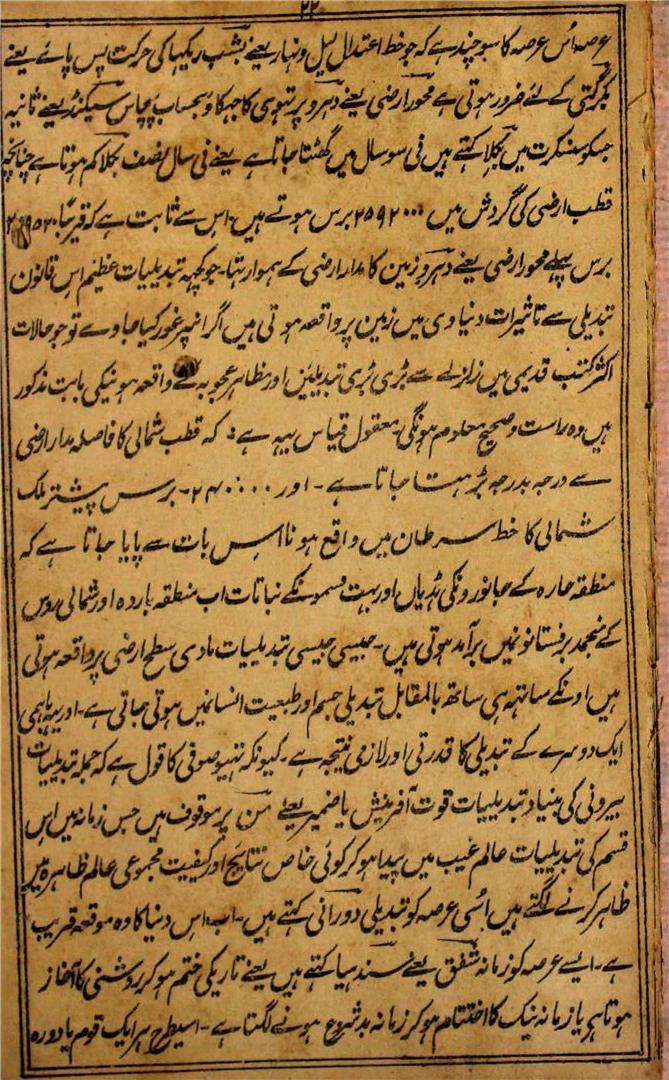 ۲۲
عرصہ اُس عرصہ کا سوچند ہے کہ جو خط اعتدال لیل و نہار یعنے بشب ریکہا کی حرکت پس پائے یعنے
بکرگتی کے لئے ضرور ہوتی ہے محور ارضی یعنے دہرو پر تہوی کا جہکاو بحساب پچاس سیکنڈ یعنے ثانیہ
جسکو سنسکرت میں بکلا کہتے ہیں فی سو سال میں گھٹتا جاتا ہے یعنے فی سال نصف بکلا کم ہوتا ہے چنانچہ
قطب ارضی کی گردش میں ۲۵۹۲۰۰۰ برس ہوتے ہیں اس سے ثابت ہے کہ قریباً
برس پہلے محور ارضی یعنے دہرو زمین کا مدار ارضی کے ہموار تہا۔ جو کچہہ تبدیلیات عظیم اس قانون
تبدیلی سے تاثیرات دنیاوی میں زمین پر واقعہ ہوتی ہیں اگر انپر غور کیا جاوے تو جو حالات
اکثر کتب قدیمی میں زلزلے سے بڑی بڑی تبدیلیں اور مظاہر عجوبہ کے واقعہ ہونیکی بابت مذکور
ہیں وہ راست و صحیح معلوم ہونگی۔ معقول قیاس یہہ ہے کہ قطب شمالی کا فاصلہ مدار ارضی
سے درجہ بدرجہ بڑہتا جاتا ہے۔ اور ۲۴۰۰۰۰۔ برس پیشتر ملک
شمالی کا خط سرطان میں واقع ہونا اس بات سے پایا جاتا ہے کہ
منطقہ حارہ کے جانورونکی ہڈیاں اور بہت قسمونکے نباتات اب منطقہ باردہ اور شمالی روس
کے منجمد برفستانونمیں برآمد ہوتی ہیں۔ جیسی جیسی تبدیلیات مادی سطح ارضی پر واقعہ ہوتی
ہیں اونکے ساتہہ ہی ساتھ بالمقابل تبدیلی جسم اور طبیعت انسانمیں ہوتی جاتی ہے۔ اور یہہ باہمی
ایک دوسرے کے تبدیلی کا قدرتی اور لازمی نتیجہ ہے۔ کیونکہ تہیوصوفی کا قول ہے کہ جملہ تبدیلیات
بیرونی کی بنیاد تبدیلیات قوت آفرینش یا ضمیر یعنے من پر موقوف ہیں جس زمانہ میں اس
قسم کی تبدیلیات عالم غیب میں پیدا ہوکر کوئی خاص نتایج اور کیفیت مجموعی عالم ظاہرہ میں
ظاہر کرنے لگتے ہیں اُسی عرصہ کو تبدیلی دورانی کہتے ہیں۔ اب اس دنیا کا وہ موقعہ قریب
ہے۔ ایسے عرصہ کو زمانہ شفق یعنے سندہیا کہتے ہیں یعنے تاریکی ختم ہوکر روشنی کا آغاز
ہوتا ہی یا زمانہ نیک کا اختتام ہوکر زمانہ بد شروع ہونے لگتا ہے۔ اسیطرح ہر ایک قوم یا دورہ